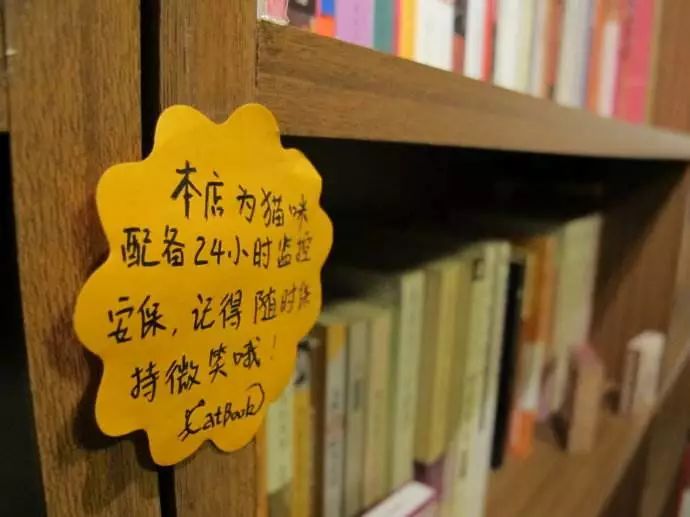 本店为猫咪
配备24小时监控
安保，记得随时保
持微笑哦！
CatBook